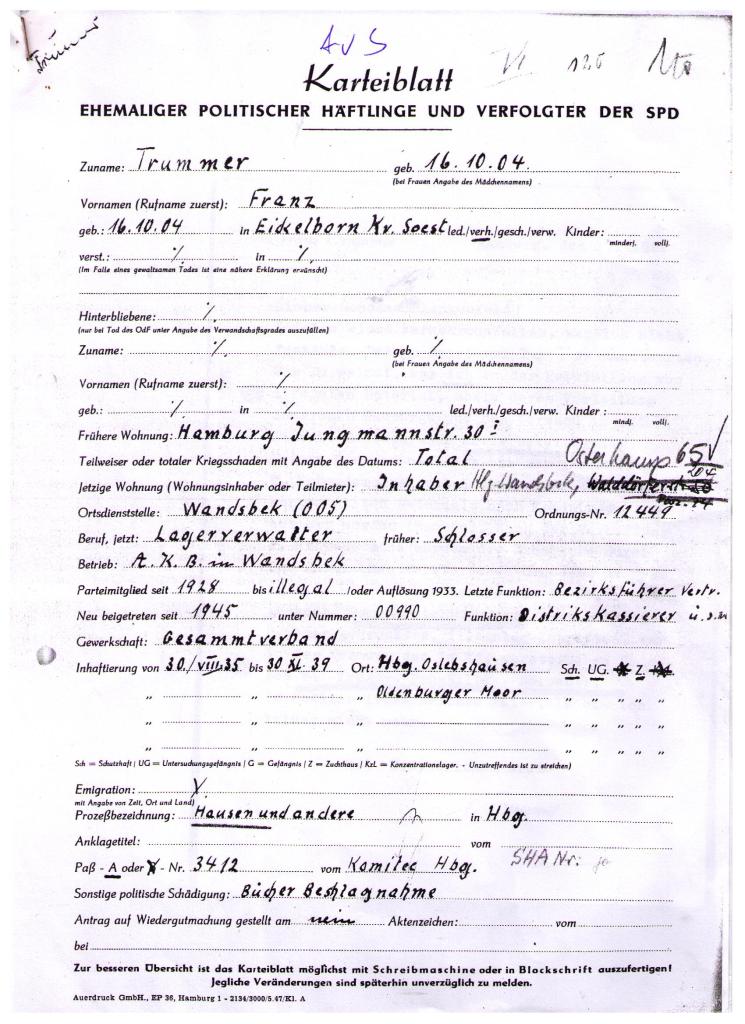 AVS
VI 120
Karteiblatt
EHEMALIGER POLITISCHER HÄFTLINGE UND VERFOLGTER DER SPD
Zuname: Trummer geb. 16.10.04.
(bei Frauen Angabe des Mädchennamens)
Vornamen (Rufname zuerst): Franz
geb.: 16.10.04 in Eickelborn Kr. Soest led./verh./gesch./verw. Kinder:
minderj. vollj.
verst.: ./. in ./.
(Im Falle eines gewaltsamen Todes ist eine nähere Erklärung erwünscht)
Hinterbliebene: ./.
(nur bei Tod des OdF unter Angabe des Verwandschaftsgrades auszufüllen)
Zuname: ./. geb. ./.
(bei Frauen Angabe des Mädchennamens)
Vornamen (Rufname zuerst): ./.
geb.: ./. in ./. led./verh./gesch./verw. Kinder:
mindj. vollj.
Frühere Wohnung: Hamburg Jungmannstr. 30 I
Teilweiser oder totaler Kriegsschaden mit Angabe des Datums: Total Osterkamp 65
Jetzige Wohnung (Wohnungsinhaber oder Teilmieter): Inhaber Hbg Wandsbek,
Ortsdienststelle: Wandsbek (005) Ordnungs-Nr. 12449
Beruf, jetzt: Lagerverwalter früher: Schlosser
Betrieb: A.K.B. in Wandsbek
Parteimitglied seit 1928 bis illegal /oder Auflösung 1933. Letzte Funktion: Bezirksführer Vertr.
Neu beigetreten seit 1945 unter Nummer: 00990 Funktion: Distrikskassierer
Gewerkschaft: Gesammtverband
Inhaftierung von 30./VIII.35 bis 30 XI. 39 Ort: Hbg. Oslebshausen Sch. UG. G. Z. KzL.
„ „ „ Oldenburger Moor „ „ „ „
„ „ „ „ „ „ „
„ „ „ „ „ „ „
Sch = Schutzhaft / UG = Untersuchungsgefängnis / G = Gefängnis / Z = Zuchthaus / KzL = Konzentrationslager. - Unzutreffendes ist zu streichen)
Emigration:
mit Angabe von Zeit, Ort und Land)
Prozeßbezeichnung: Hausen und andere in Hbg.
Anklagetitel: vom
Paß - A oder B - Nr. 3412 vom Komitee Hbg. SHA Nr:
Sonstige politische Schädigung: Bücher Beshlagnahme
Antrag auf Wiedergutmachung gestellt am nein Aktenzeichen: vom
bei
Zur besseren Übersicht ist das Karteiblatt möglichst mit Schreibmaschine oder in Blockschrift auszufertigen!
Jegliche Veränderungen sind späterhin unverzüglich zu melden.
Auerdruck GmbH., EP 36, Hamburg 1 - 2134/3000/5.47/Kl. A